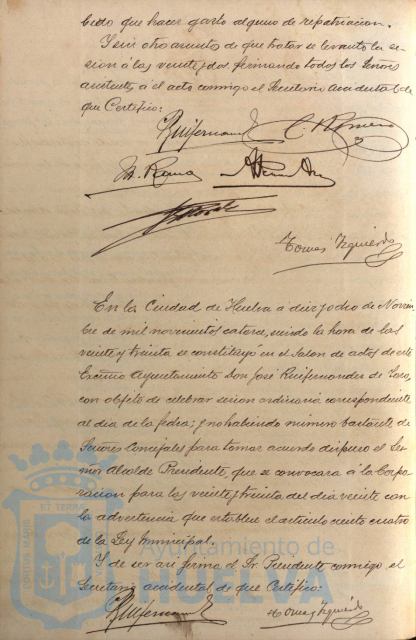 bedo que hacer gasto alguno de repatriacion.
Y sin otro asuntos de que tratar se levantó la se-
sion á las veinte y dos firmando todos los Señores
asistentes á el acto conmigo el Secretario accidental de
que Certifico:
Ruifernand C. Romero
M. Roma
Tomas Izquierdo
En la Ciudad de Huelva á diez y ocho de Noviem
bre de mil novecientos catorce, siendo la hora de las
veinte y treinta se constituyó en el Salon de actos de este
Excmo Ayuntamiento Don José Ruifernandez de Toro,
con objeto de celebrar sesion ordinaria correspondiente
al dia de la fecha; y no habiendo número bastante de
Señores Concejales para tomar acuerdo dispuso el Se-
ñor Alcalde Presidente, que se convocara á la Corpo-
racion para las veinte y treinta del dia veinte con
la advertencia que establece el articulo ciento cuatro
de la Ley Municipal.
Y de ser asi firma el Sr. Presidente conmigo el
Secretario accidental de que Certifico:
Ruifernand Tomas Izquierdo
Ayuntamiento de
HUELVA